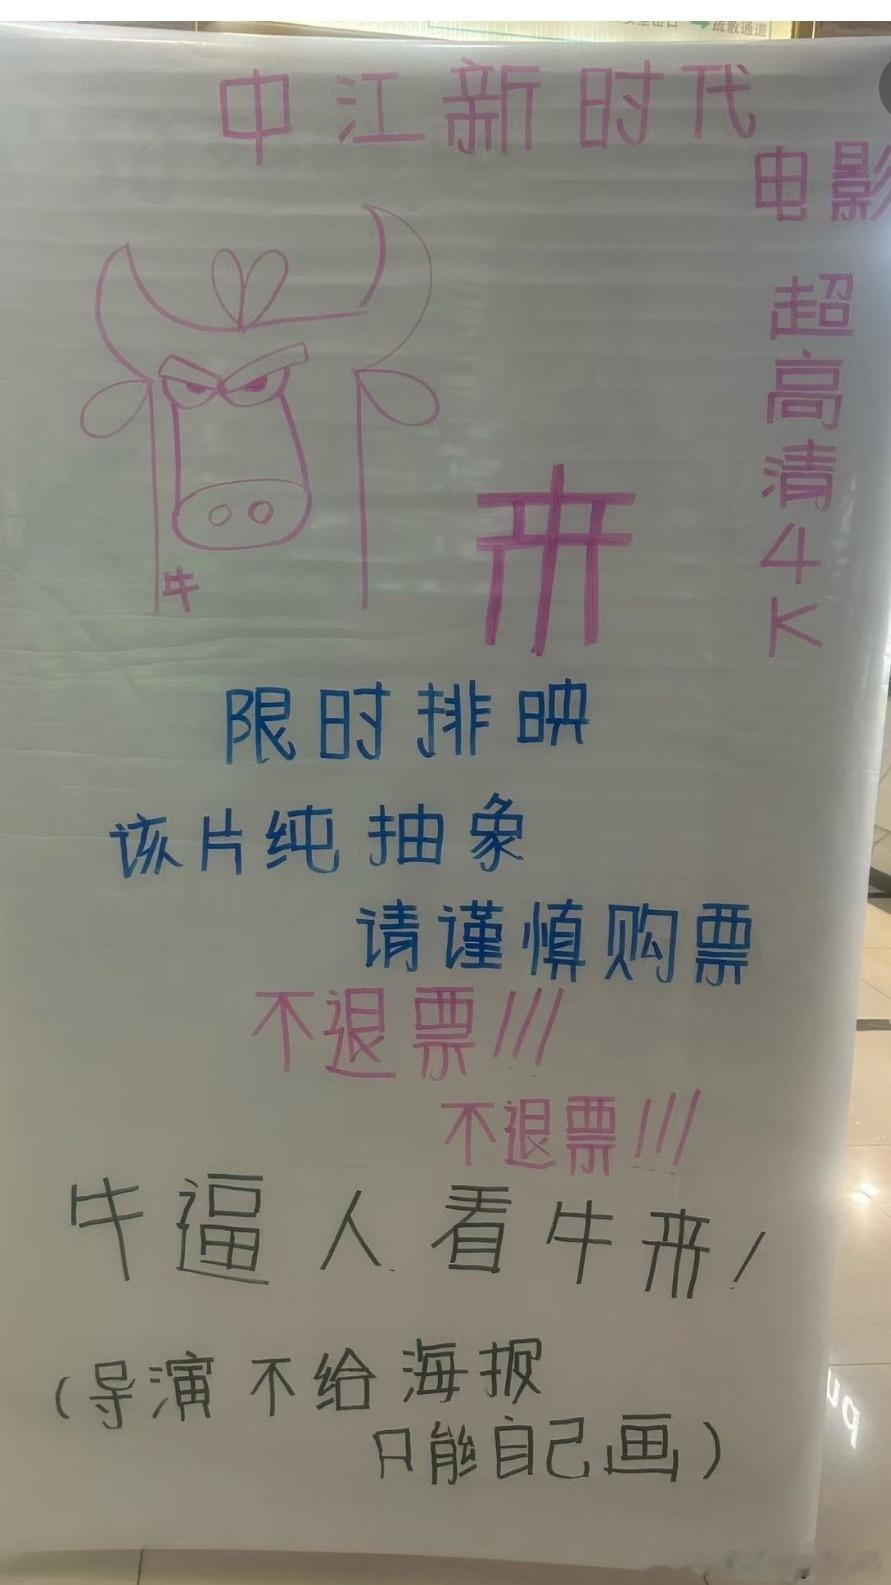 疏散通道
中江新时代
电影
超高清4K
牛
来
限时排映
该片纯抽象
请谨慎购票
不退票!!!
不退票!!!
牛逼人看牛来!
(导演不给海报
只能自己画)